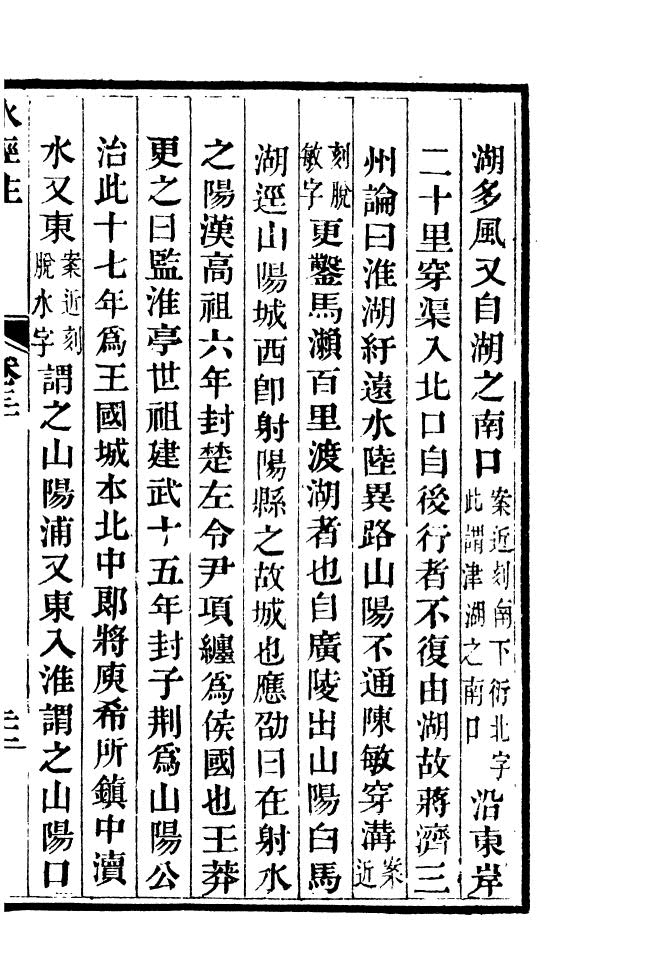 湖多風又自湖之南口案近刻南下衍北字此謂津湖之南口沿東岸
二十里穿渠入北口自後行者不復由湖故蔣濟三
州論曰淮湖紆遠水陸異路山陽不通陳敏穿溝案近
刻脫敏字更鑿馬瀨百里渡湖者也自廣陵出山陽白馬
湖逕山陽城西卽射陽縣之故城也應劭曰在射水
之陽漢高祖六年封楚左令尹項纏爲侯國也王莽
更之曰監淮亭世祖建武十五年封子荆爲山陽公
治此十七年爲王國城本北中郎將庾希所鎮中瀆
水又東案近刻脫水字謂之山陽浦又東入淮謂之山陽口
水經注 卷三十